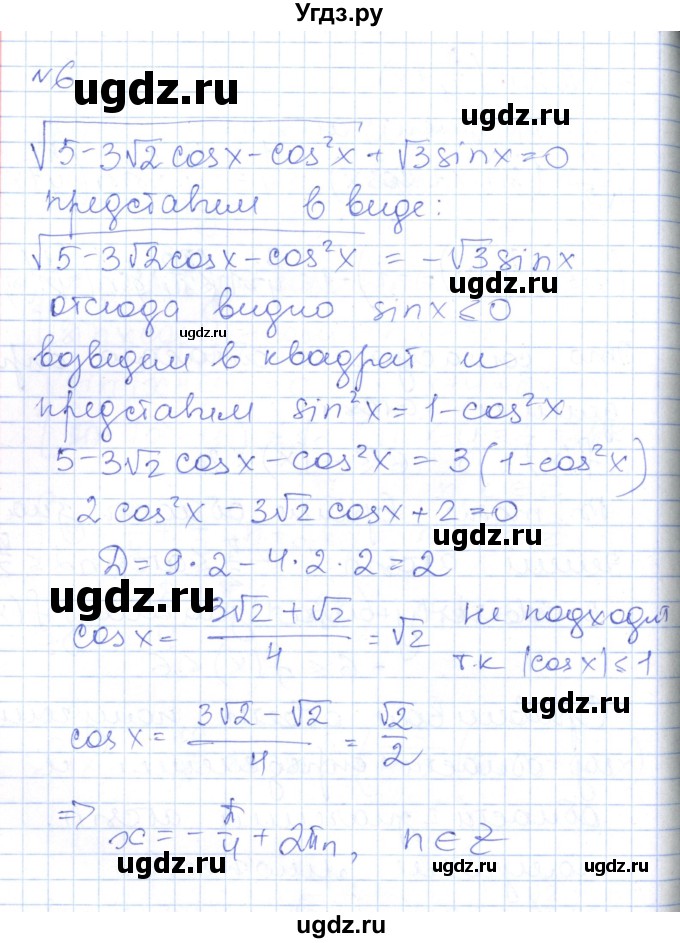 Угдз.ру
№6
ugdz.ru
ugdz.ru
√(5-3√2 cosx - cos²x) + √3 sinx = 0
представим в виде:
√(5-3√2cosx - cos²x) = -√3 sinx
ugdz.ru
отсюда видно sinx ≤ 0
ugdz.ru
возведем в квадрат и
представим sin²x = 1-cos²x
ugdz.ru
5-3√2 cosx - cos²x = 3(1-cos²x)
2 cos²x - 3√2 cosx + 2 = 0
ugdz.ru
Д = 9·2 - 4·2·2 = 2
ugdz.ru
cosx = (3√2 + √2)/4 = √2 не подходит
т.к |cosx| ≤ 1
cosx = (3√2 - √2)/4 = √2/2
⇒ x = -π/4 + 2πn, n ∈ Z
ugdz.ru
ugdz.ru
ugdz.ru